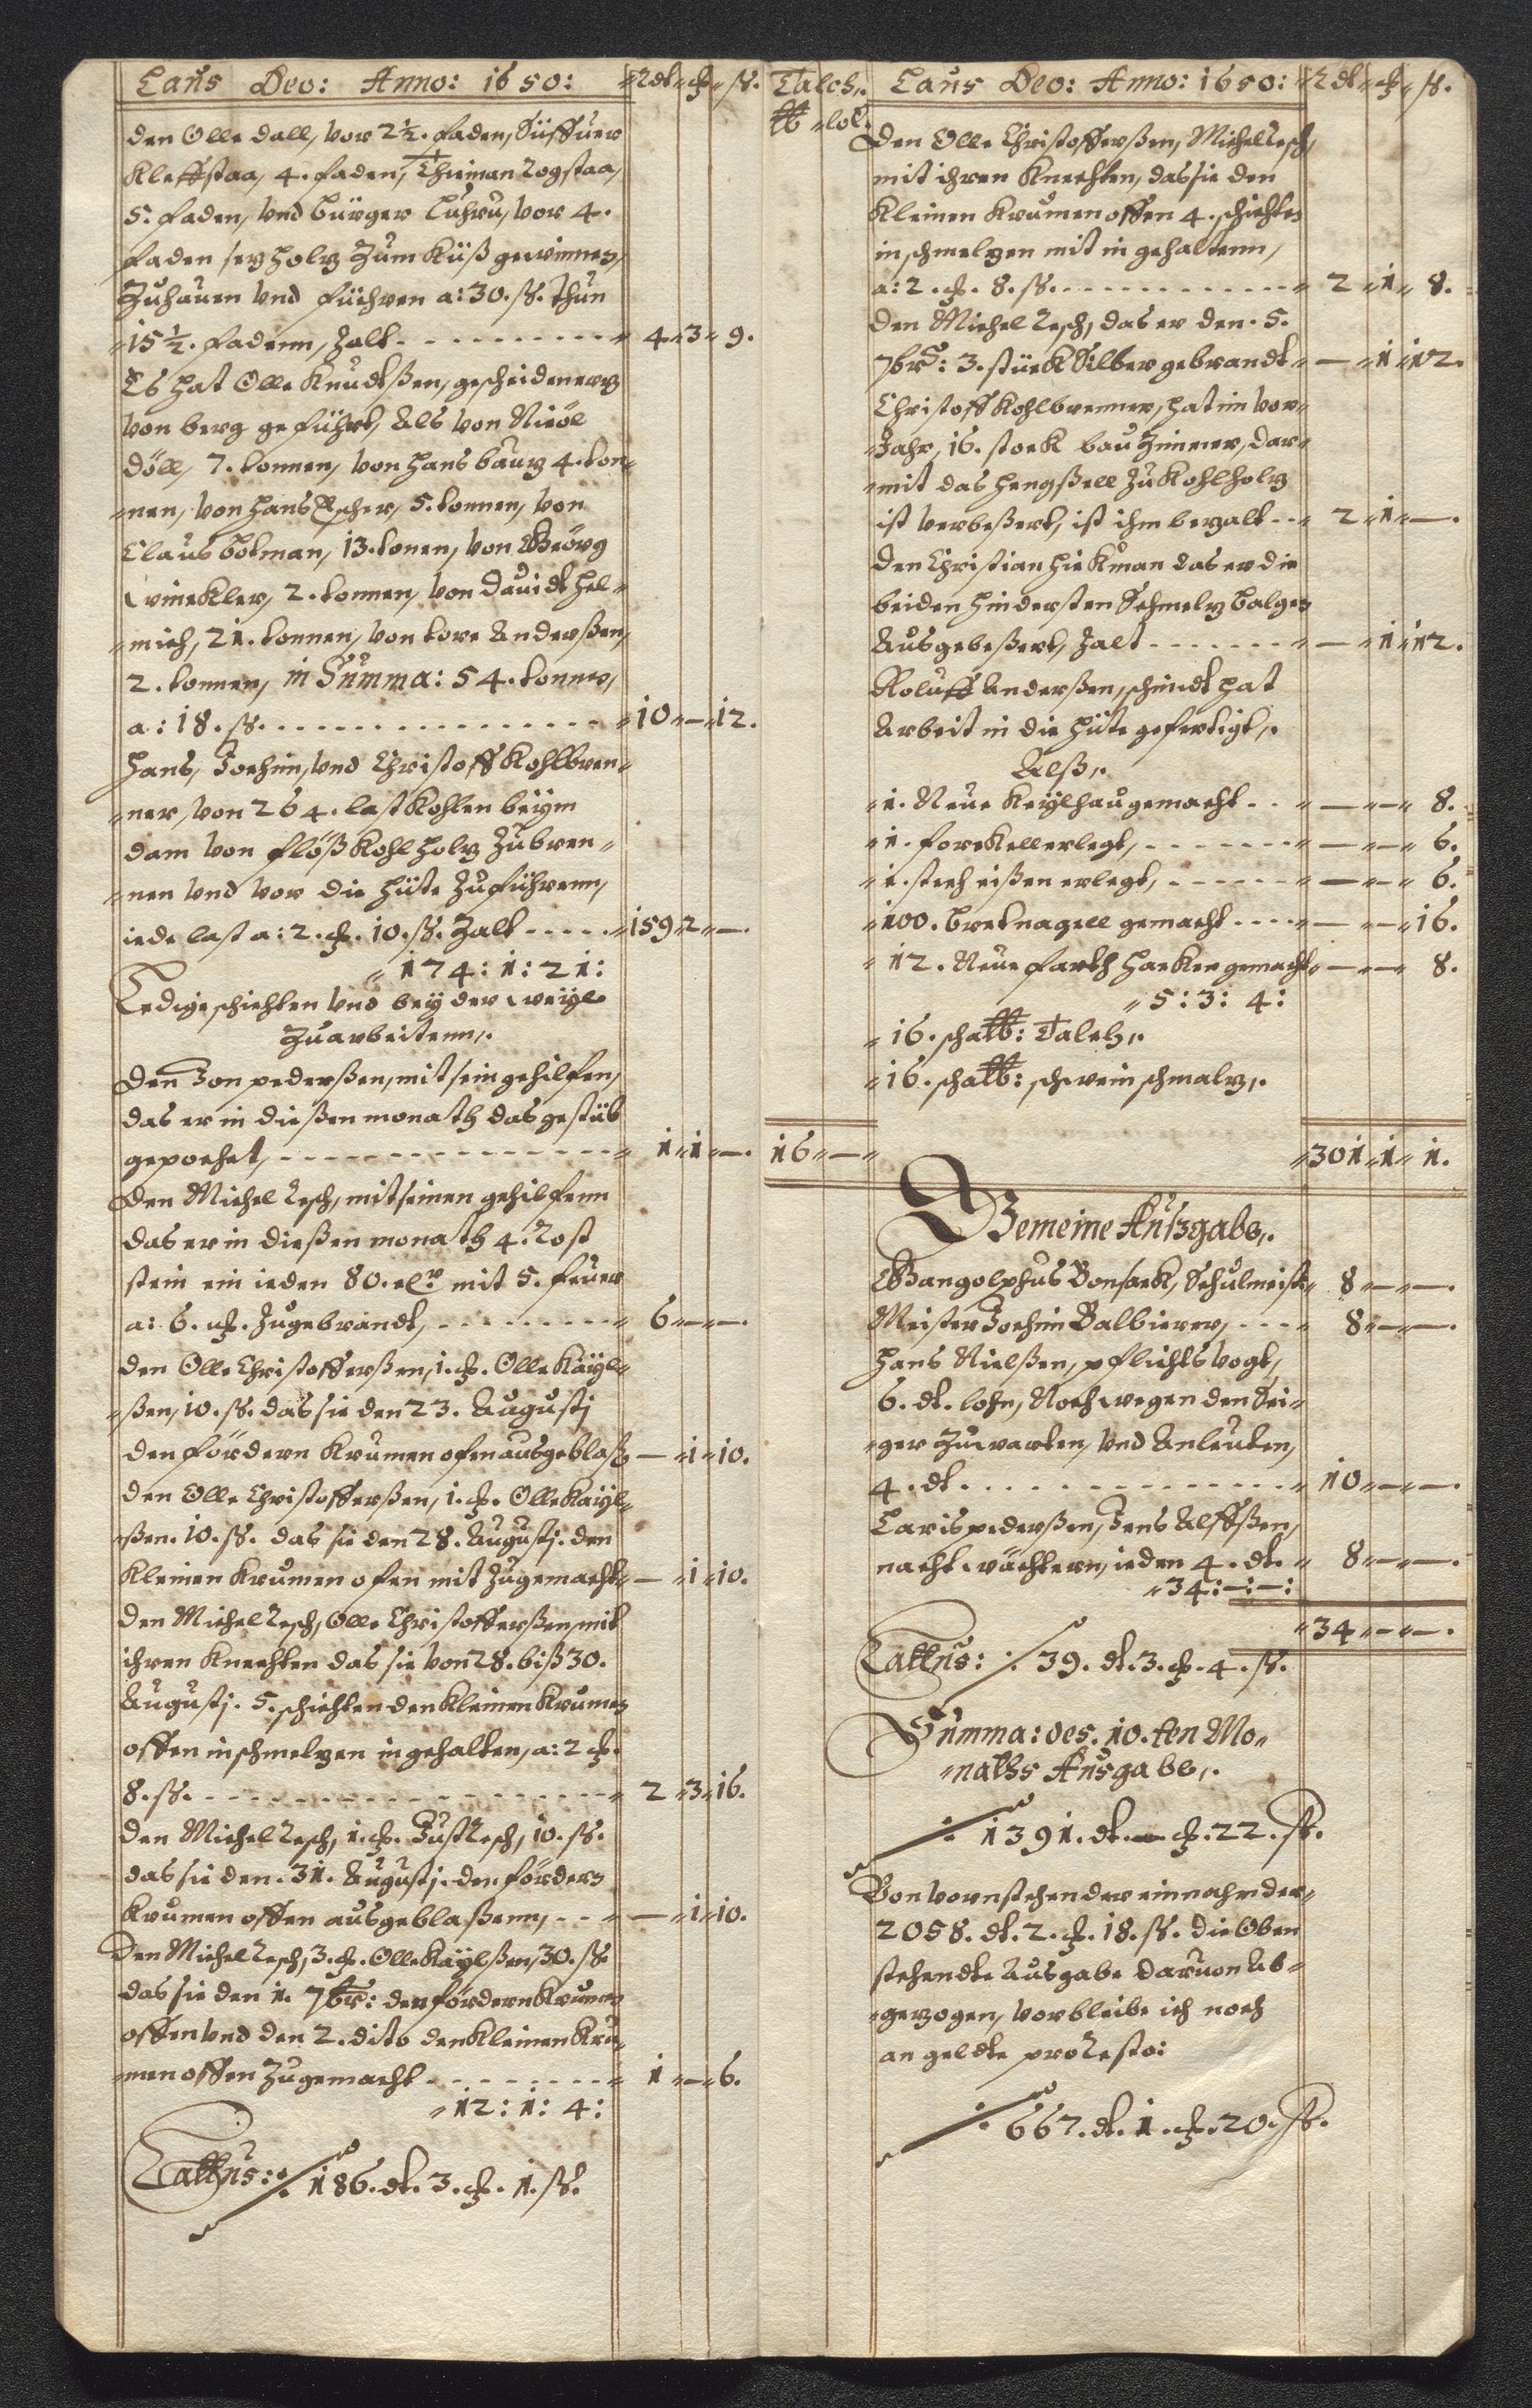 Laus Deo: Anno: 1650: Rdt ß.
den Olle dall, vor 2½. faden, Süffuer
Kleffstaa, 4. faden, Thieman Rogstaa,
5. faden, vnd bürger Luhru, vor 4.
faden setz holtz Zum Küß gewinnen,
Zuhauen vnd führen a: 30. ß. thun
15½. fadenn, Zalt - - - 4 " 3 " 9.
Es hat Olle Knudtßen, gescheiden ertz
von berg geführt, Als von Niröl
döll, 7. tonnen, von Hans baur 4. ton-
nen, von Hans Escher, 5. tonnen, von
Claus Botman, 13. tonen, von Geörg
Winckler, 2. tonnen, von Dauidt Hel-
mich, 21. tonnen, von tore Anderßen,
2. tonnen, in Summa: 54. tonnen,
a: 18. ß. - - - 10 " — " 12.
Hans, Jochim, vnd Christoff Kohlbren-
ner, von 264. last Kohlen beÿm
dam von flöß Kohlholtz Zubren-
nen vnd vor die Hütte Zuführenn,
iede last a: 2. 10. ß. Zalt - - - 159 " 2 " —.
174: 1: 21:
Ledige schichten vnd beÿ der weÿle
Zuarbeitenn,.
Den Jon pederßen, mit sein gehilfen,
das er in dießen monath das gestüb
gepochet, - - - 1 " 1 " —.
Den Michel Resch, mit seinen gehilfenn
das er in dießen monath 4. Rost
stein ein ieden 80. mit 5. feuer
a: 6. Zugebrandt, - - - 6 " — " —.
den Olle Christofferßen, 1. Olle Käÿl-
ßen, 10. ß. das sie den 23. Augustj
den fördern Krumen ofen ausgeblaß — " 1 " 10.
den Olle Christofferßen, 1. Olle Kaÿl-
ßen. 10. ß. das sie den 28. Augustj. den
Kleinen Krumen ofen mit Zugemacht " — " 1 " 10.
den Michel Resch, Olle Christofferßen, mit
ihren Knechten das sie von 28. biß 30.
Augustj. 5. schichten den Kleinen Krumen
offen in schmeltzen in gehalten, a: 2
8. ß. - - - 2 " 3 " 16.
den Michel Resch, 1. Just Resch, 10. ß.
das sie den. 31. Augustj. den fördern
Krumen offen ausgeblaßenn, - - - — " 1 " 10.
Den Michel Resch, 3. Olle Kaÿlßen, 30. ß
das sie den 1. 7br: den fördern Krumen
offen vnd den 2. dito den Kleinen Kru-
men offen Zugemacht - - - 1 " — " 6.
12: 1: 4:
Lattus: 186. dt. 3. 1. ß.
Talch,. Laus Deo: Anno: 1650: Rdt ß.
℔ lot.
Den Olle Christofferßen, Michel Resch,
mit ihren Knechten, das sie den
Kleinen Krumen offen 4. schichten
in schmeltzen mit in gehaltenn,
a: 2. 8. ß. - - - 2 " 1 " 8.
den Michel Resch, das er den. 5.
7br: 3. stück Silber gebrandt — " 1 " 12.
Christoff Kohlbrenner, hat im vor-
Jahr, 16. stock bau Zimmer, dar-
mit das Hengßell Zu Kohlholtz
ist verbeßert, ist ihm bezalt - - 2 " 1 " —.
den Christian Hickman das er die
beiden hindersten Schmeltz balgen
Ausgebeßert, Zalt - - - — " 1 " 12.
Roluff Anderßen, schmidt hat
Arbeit in die Hütte gefertigt,.
Alß,.
1. Neue Keÿlhau gemacht - - — " — " 8.
1. forckell erlegt, - - - — " — " 6.
1. stech eißen erlegt, - - - — " — " 6.
100. bretnagell gemacht - - - — " — " 16.
12. Neue farth Hacken gemacht — " — " 8.
5: 3: 4:
16. schal℔: Talch,.
16. schal℔: schwein schmaltz,.
16 " — 301 " 1 " 1.
Gemeine Außgabe,.
Gangolphus Bonsack, Schulmeister 8 " — " —.
Meister Jochim Balbierer, - - - 8 " — " —.
Hans Nielßen, pflichts vogt,
6. dt. lohn, Noch wegen den Sei-
ger Zuwarten, vnd Anleuten,
4. dt. - - - 10 " — " —.
Laris pederßen, Jens Alffßen,
nacht wächtern, ieden 4. dt. " 8 " — " —.
34: —: —:
34 " — " —.
Lattus: 39. dt. 3. 4. ß.
Summa: des. 10. ten Mo-
naths Ausgabe,.
1391. dt. — 22. ß.
Von vornstehender einnahm der
2058. dt. 2. 18. ß. die Oben
stehendte Ausgabe daruon Ab-
gezogen, vorbleibe ich noch
an geldte pro Resto:
667. dt. 1. 20. ß.